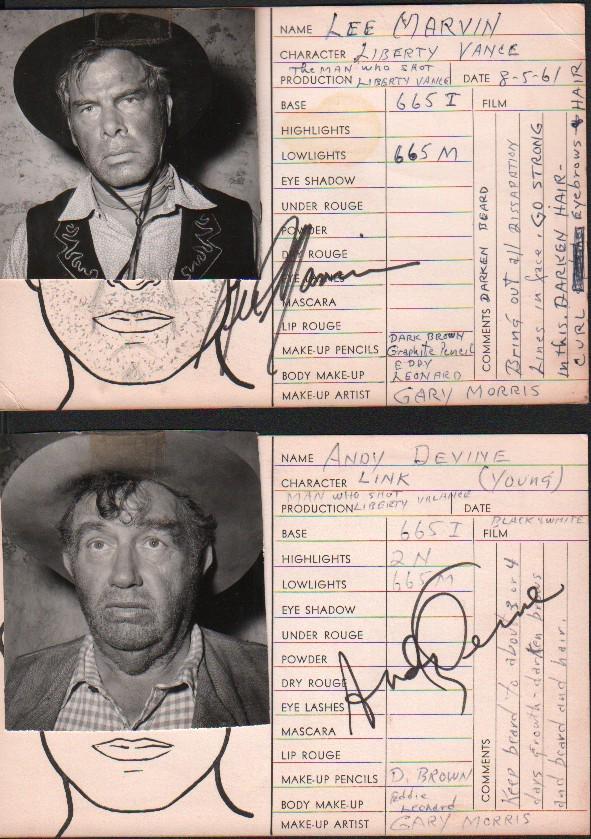 NAME LEE MARVIN
CHARACTER LIBERTY VANCE
The MAN WHO SHOT
PRODUCTION LIBERTY VANCE DATE 8-5-61
BASE 665 I FILM
HIGHLIGHTS
LOWLIGHTS 665 M
EYE SHADOW
UNDER ROUGE
POWDER
DRY ROUGE
EYE LASHES
MASCARA
LIP ROUGE
MAKE-UP PENCILS DARK BROWN
Graphite Pencil
BODY MAKE-UP EDDY
LEONARD
MAKE-UP ARTIST GARY MORRIS
COMMENTS DARKEN BEARD
Bring out all DISSAPATION
Lines in face. GO STRONG
In this. DARKEN HAIR-
CURL EYEBROWS & HAIR
Lee Marvin
NAME ANDY DEVINE
CHARACTER LINK (Young)
MAN WHO SHOT
PRODUCTION LIBERTY VALANCE DATE
BLACK & WHITE
BASE 665 I FILM
HIGHLIGHTS 2N
LOWLIGHTS 665M
EYE SHADOW
UNDER ROUGE
POWDER
DRY ROUGE
EYE LASHES
MASCARA
LIP ROUGE
MAKE-UP PENCILS D. BROWN
BODY MAKE-UP Eddie
Leonard
MAKE-UP ARTIST GARY MORRIS
COMMENTS
Keep beard to about 3 or 4
days growth-darken brows
and beard and hair.
Andy Devine